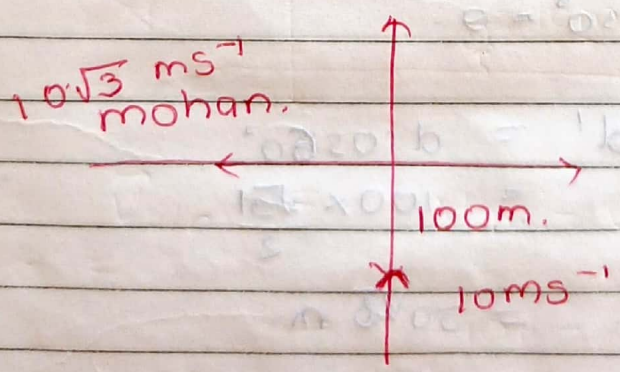 10√3 ms⁻¹
mohan.
100m.
10ms⁻¹